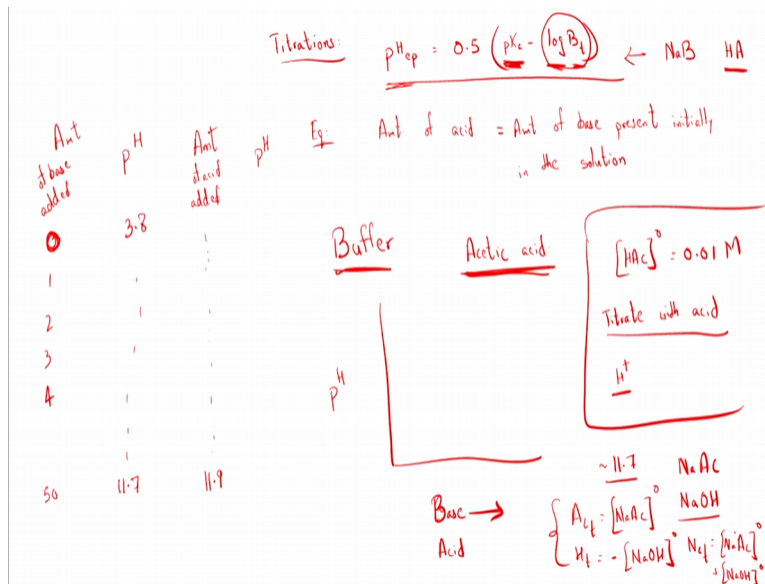 Titrations: pHep = 0.5 (pKc - log Bt) ← NaB HA
Amt of base added pH Amt of acid added pH
Eq: Amt of acid = Amt of base present initially
in the solution
0 3.8
1
2
3
4
50 11.7 11.9
Buffer Acetic acid
[HAc]⁰ = 0.01 M
Titrate with acid
H⁺
pH
~11.7 NaAc
NaOH
Base →
Acid
Act = [NaAc]⁰
Ht = - [NaOH]⁰
Nat = [NaAc]⁰
+ [NaOH]⁰